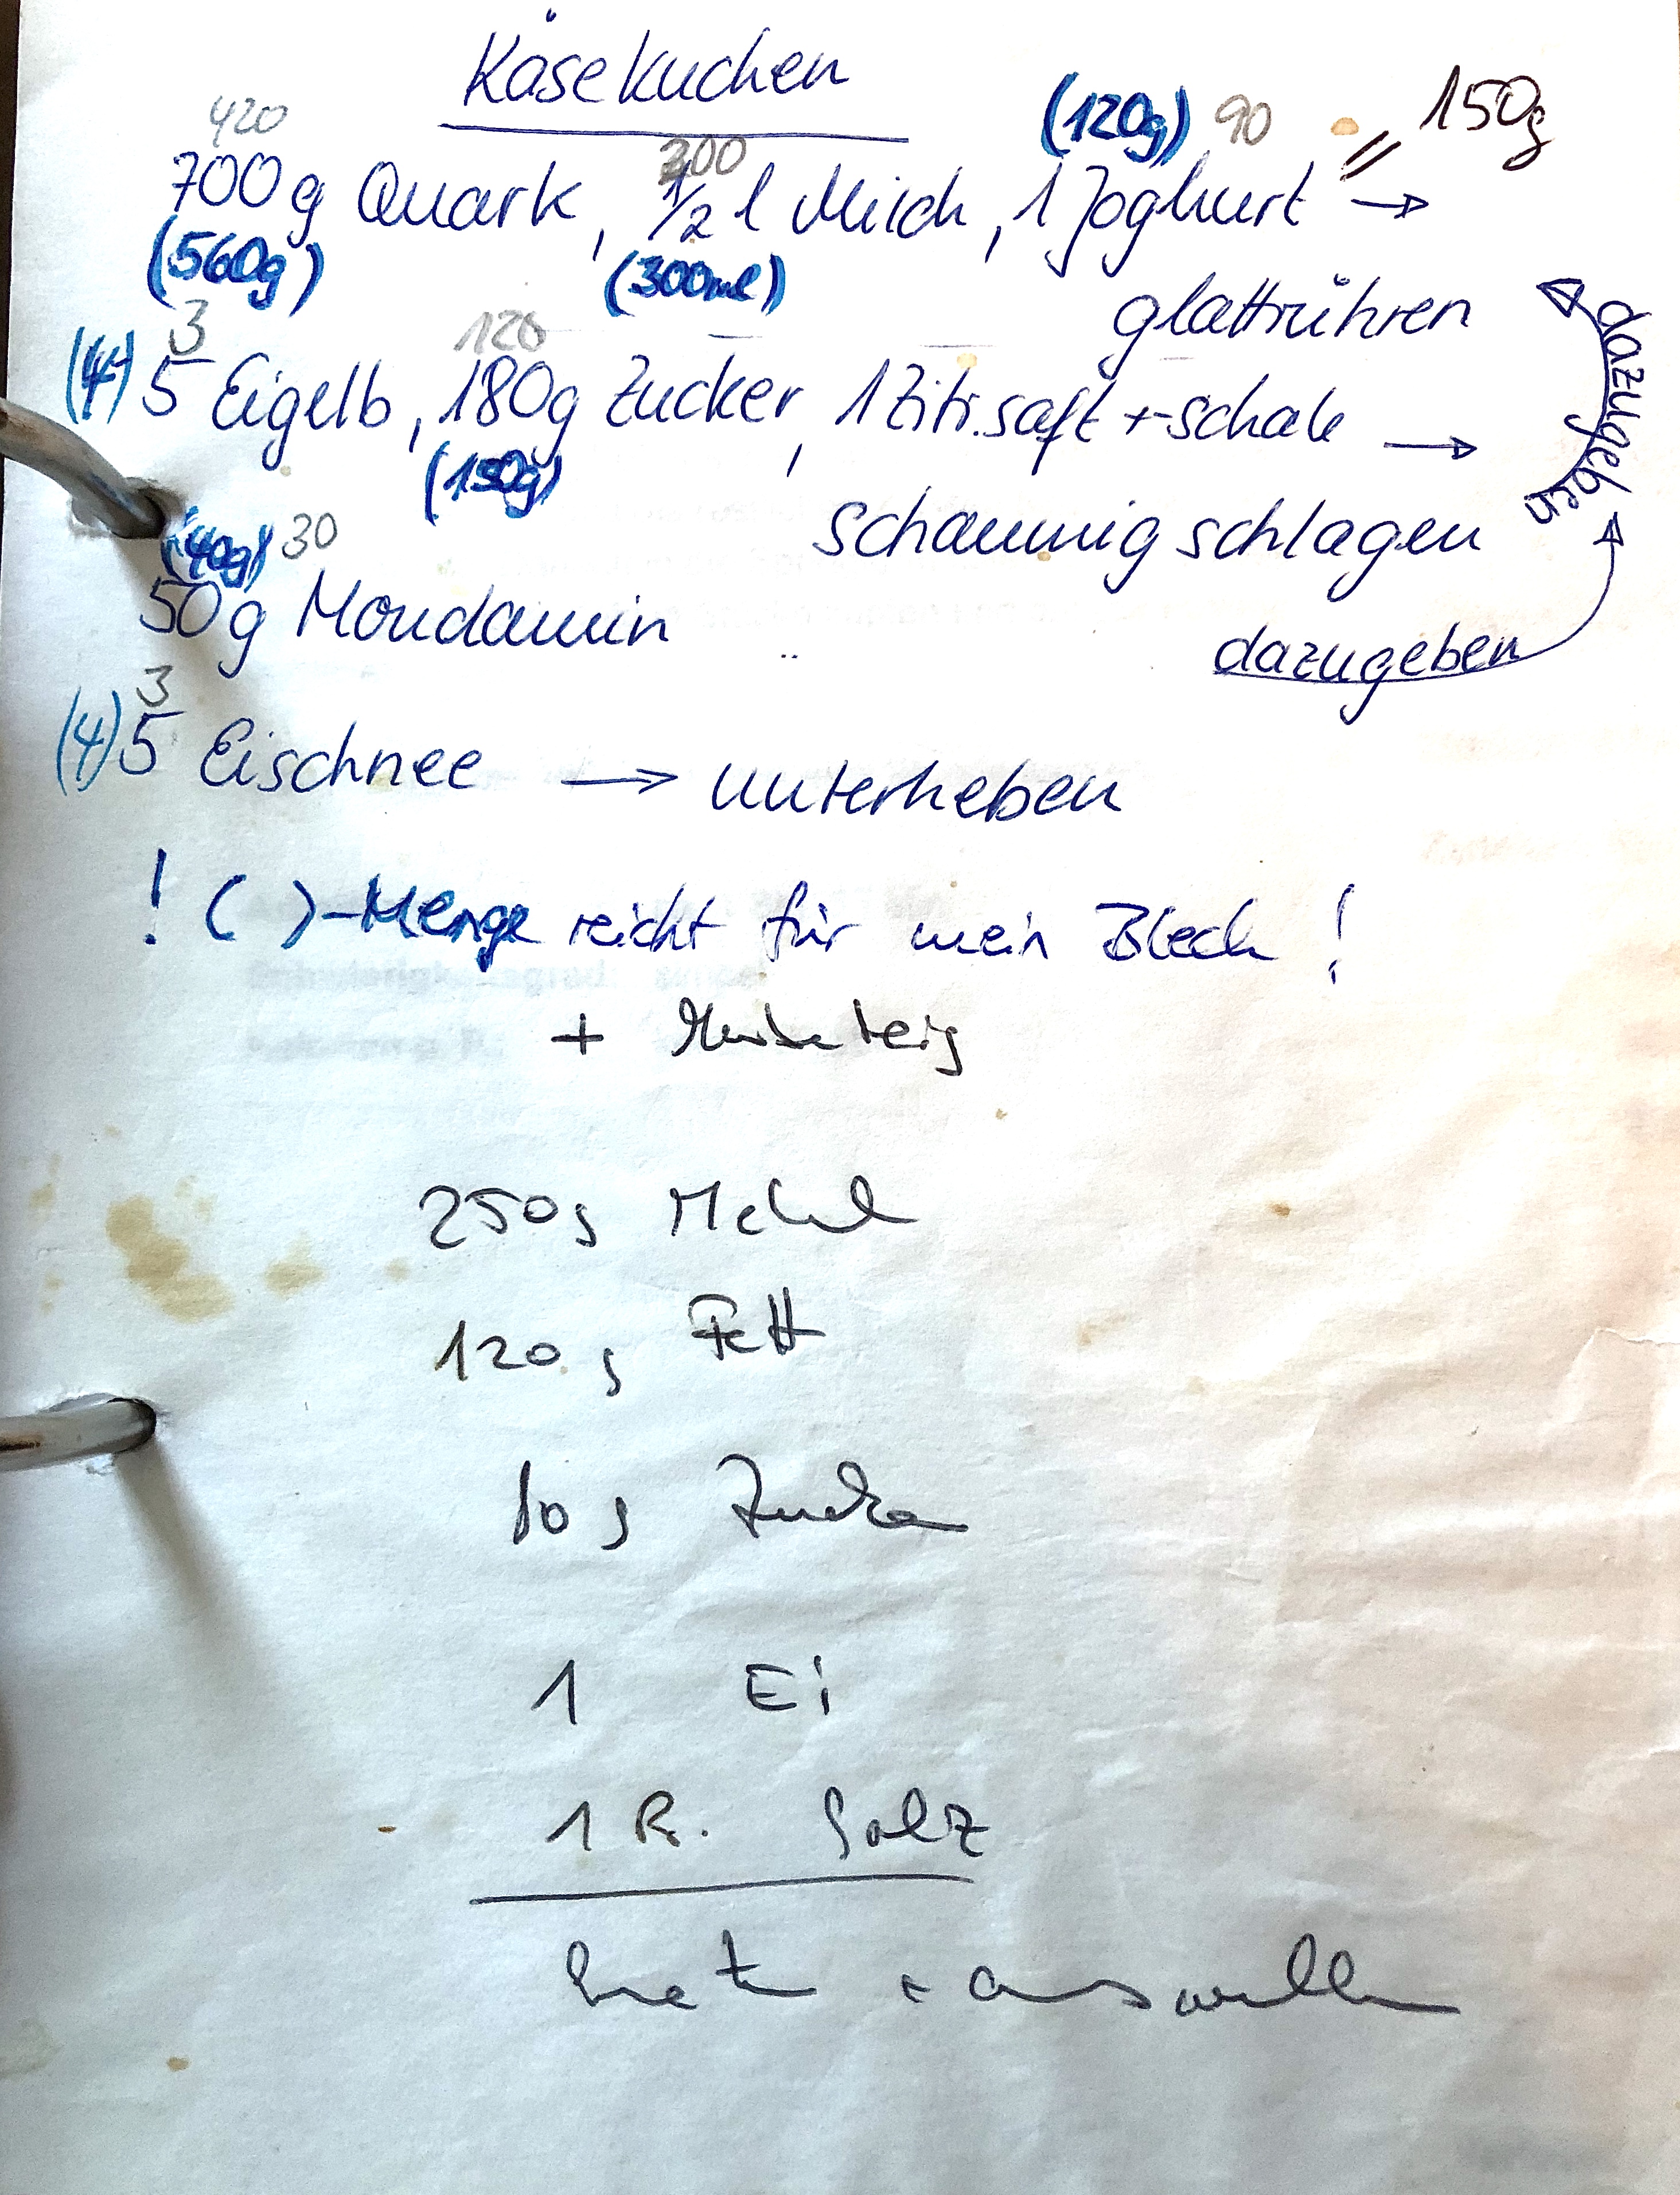 Käsekuchen
420 300 (120g) 90 = 150g
700g Quark, 1/2 l Milch, 1 Joghurt →
(560g) (300ml) glattrühren
3 120
(4) 5 Eigelb, 180g Zucker, 1 Zitr.saft + -schale →
(150g) dazugeben
(40g) 30 schaumig schlagen
50g Mondamin
dazugeben
3
(4) 5 Eischnee → unterheben
! ( )-Menge reicht für mein Blech !
+ Mürbeteig
250g Mehl
120g Fett
Zucker
1 Ei
1 Pr. Salz
+ auswellen